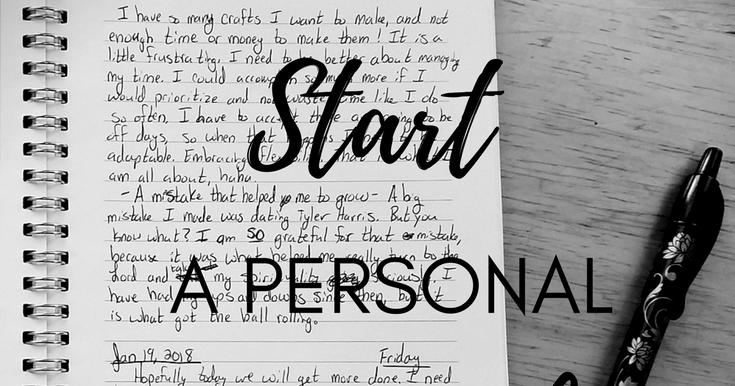 I have so many crafts I want to make, and not
enough time or money to make them! It is a
little frustrating. I need to be better about managing
my time. I could accomplish so much more if I
would prioritize and not waste time like I do
so often. I have to accept there are going to be
off days, so when that happens I
adaptable. Embracing what
am all about, haha.
- A mistake that helped me to grow - A big
mistake I made was dating Tyler Harris. But you
know what? I am so grateful for that mistake,
because it was what helped me really turn to the
Lord and my spirituality seriously. I
have had ups and downs since then, but it
is what got the ball rolling.
Start
A PERSONAL
Jan 19, 2018 Friday
Hopefully today we will get more done. I need